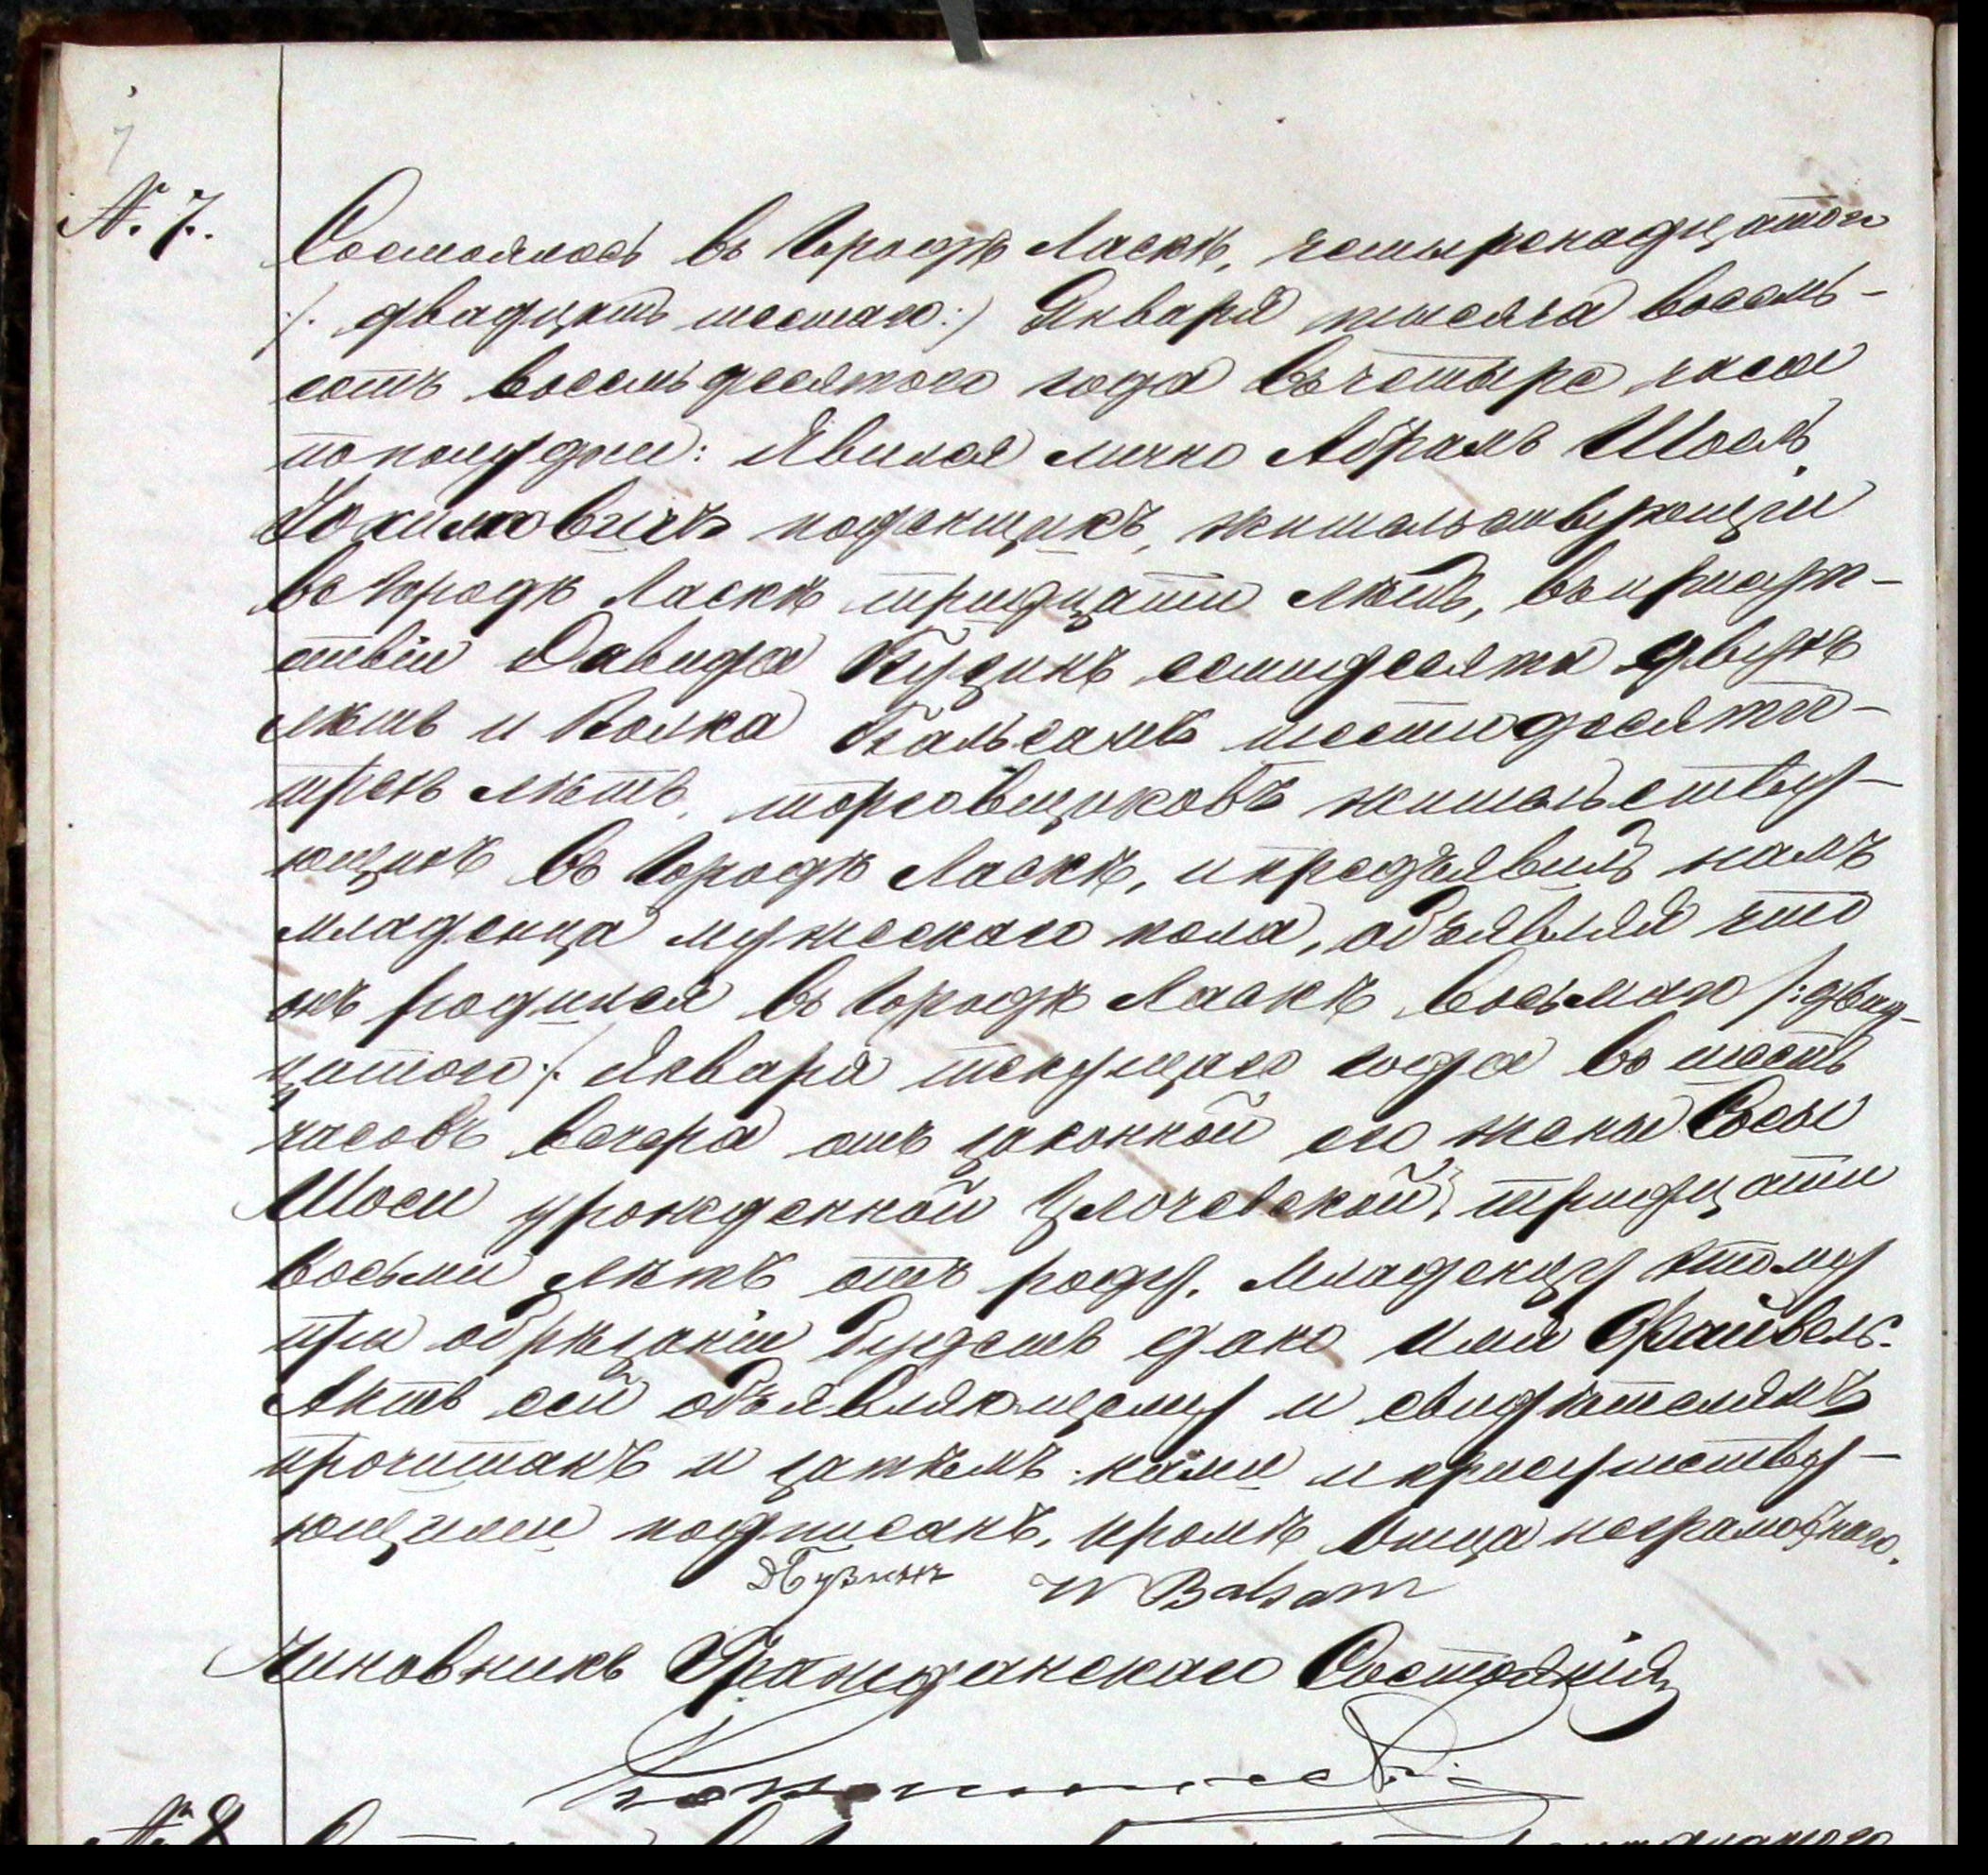 7
N. 7. Состоялось въ городѣ Ласкѣ, четырнадцатого
/: двадцать шестаго :/ Января тысяча восемь-
сотъ восемьдесятого года въ четыре часа
по полудни: Явился лично Абрамъ Шоель
Іохимовичъ поденщикъ, жительствующій
въ городѣ Ласкѣ тридцати лѣтъ, въ присут-
ствіи Давида Бузинъ семидесяти двухъ
лѣтъ и Волка Бальсамъ шестидесяти-
трехъ лѣтъ, торговщиковъ жительству-
ющихъ въ городѣ Ласкѣ, и предъявилъ намъ
младенца мужескаго пола, объявляя что
онъ родился въ городѣ Ласкѣ восьмаго /: двад-
цатого :/ Января текущаго года въ шесть
часовъ вечера отъ законной его жены
Шоеи урожденной Злочевской, тридцати
восьми лѣтъ отъ роду. Младенцу этому
при обрѣзаніи будетъ дано имя Файвель.
Актъ сей объявляющему и свидѣтелямъ
прочитанъ и затѣмъ нами и присутству-
ющими подписанъ, кромѣ отца неграмотнаго.
ДБузинъ W Balsam
Чиновникъ Гражданскаго Состоянія
N. 8